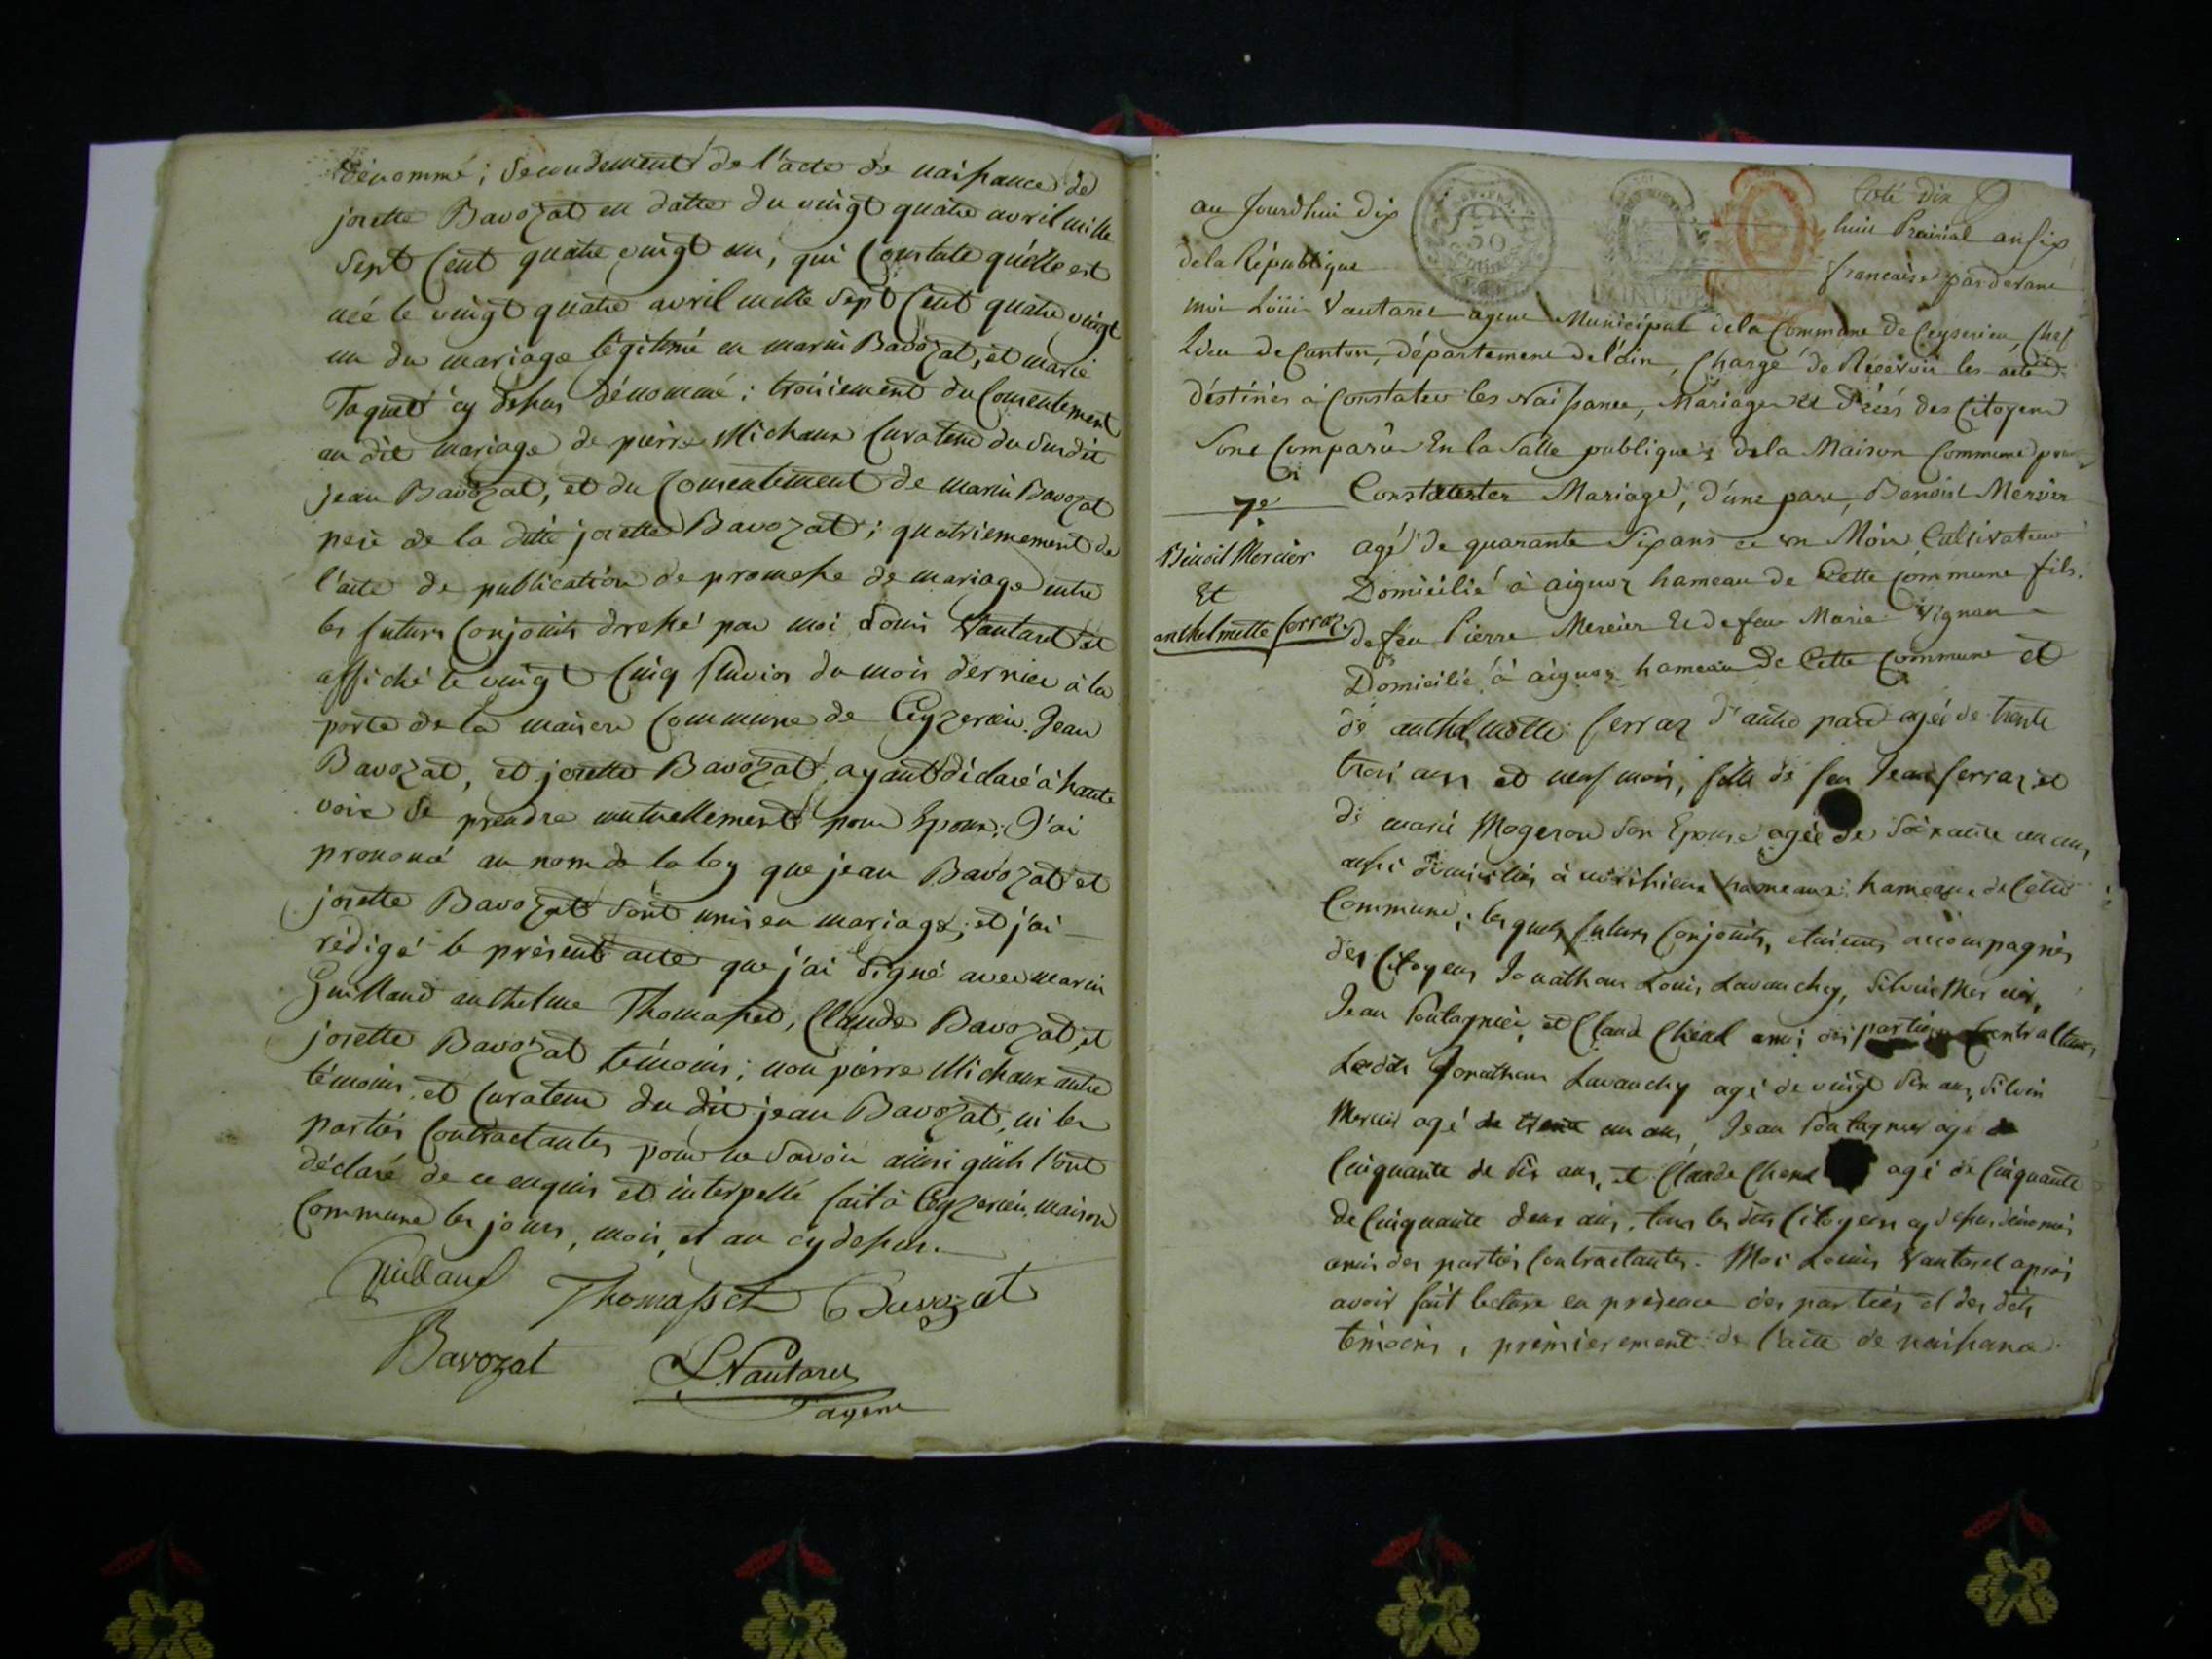 dénommé; Secondement de l'acte de naissance de
josette Bavozat en datte du vingt quatre avril mille
Sept Cent quatre vingt un, qui Constate quélle est
neé le vingt quatre avril mille Sept Cent quatre vingt
un du mariage légitimé en marin Bavozat, et marie
Taquet cy dessus dénommé; troisiement du Consentement
au dit mariage de pierre Michaux Curateur du Susdit
jean Bavozat, et du Consentement de marin Bavozat
pere de la ditte josette Bavozat; quatriemement de
l'acte de publication de promesse de mariage entre
les futurs Conjoints dressé par moi Louis Vautaret et
affiché le vingt Cinq du mois dernier à la
porte de la maison Commune de Ceyzerieu. Jean
Bavozat, et josette Bavozat, ayant déclaré à haute
voix Se prendre mutuellement pour Epoux; J'ai
prononcé au nom de la loy que jean Bavozat et
josette Bavozat Sont unis en mariage; et j'ai
rédigé le présent acte que j'ai Signé avec marin
Guilland anthelme Thomasset, Claude Bavozat, et
josette Bavozat témoins; non pierre Michaux autre
témoins, et Curateur du dit jean Bavozat, ni les
parties Contractantes pour ne Savoir ainsi quils l'ont
déclaré de ce enquis et interpellé fait à Ceyzerieu, maison
Commune les jours, mois, et an cy dessus.
Guilland Thomasset Bavozat
Bavozat L. Vautaret
agent
Coté Dix
au Jourdhui dix huit Prairial an six
de la République francaise pardevant
moi Louis Vautaret agent Municipal dela Commune de Ceyserieu, Chef
Lieu de Canton, département de l'ain, Chargé de Recevoir les acte
déstinés à Constater les Naissance, Mariages et Décés des Citoyens
Sont Comparu En la Salle publique, dela Maison Commune pour
7e
Constater Mariage, d'une part, Benoist Mercier
Benoit Mercier
Et
anthelmette ferraz
agé de quarante Six ans et un Mois Cultivateur
Domicilié à aignoz hameau de Cette Commune fils
de feu Pierre Mercier Et de feu Marie Vignau
Domicilié à aignoz hameau de Cette Commune et
de anthelmette ferraz d'autre part agée de trente
trois ans et neuf mois, fille de feu Jean ferraz, et
de marie Mogeron Son Epouse agée de Soixante un ans
aussi domiciliés à hameaux hameaux de Cette
Commune; lesquels futurs Conjoints, etaient accompagnés
des Citoyens Jonathan Louis Lavanchy, Silvin Mercier,
Jean Pontagnier, et Claud Chene amis des parties Contractantes
Lesdits Jonathan Lavanchy agé de vingt Six ans, Silvin
Mercier agé de trente un ans, Jean Pontagnier agé de
Cinquante de Six ans, et Claude Chene agé de Cinquante
de Cinquante deux ans, tous les dits Citoyens cy dessus dénomés
amis des parties Contractantes. Moi Louis Vautaret après
avoir fait lecture en présence des parties et des dits
témoins, premierement de l'acte de naissance